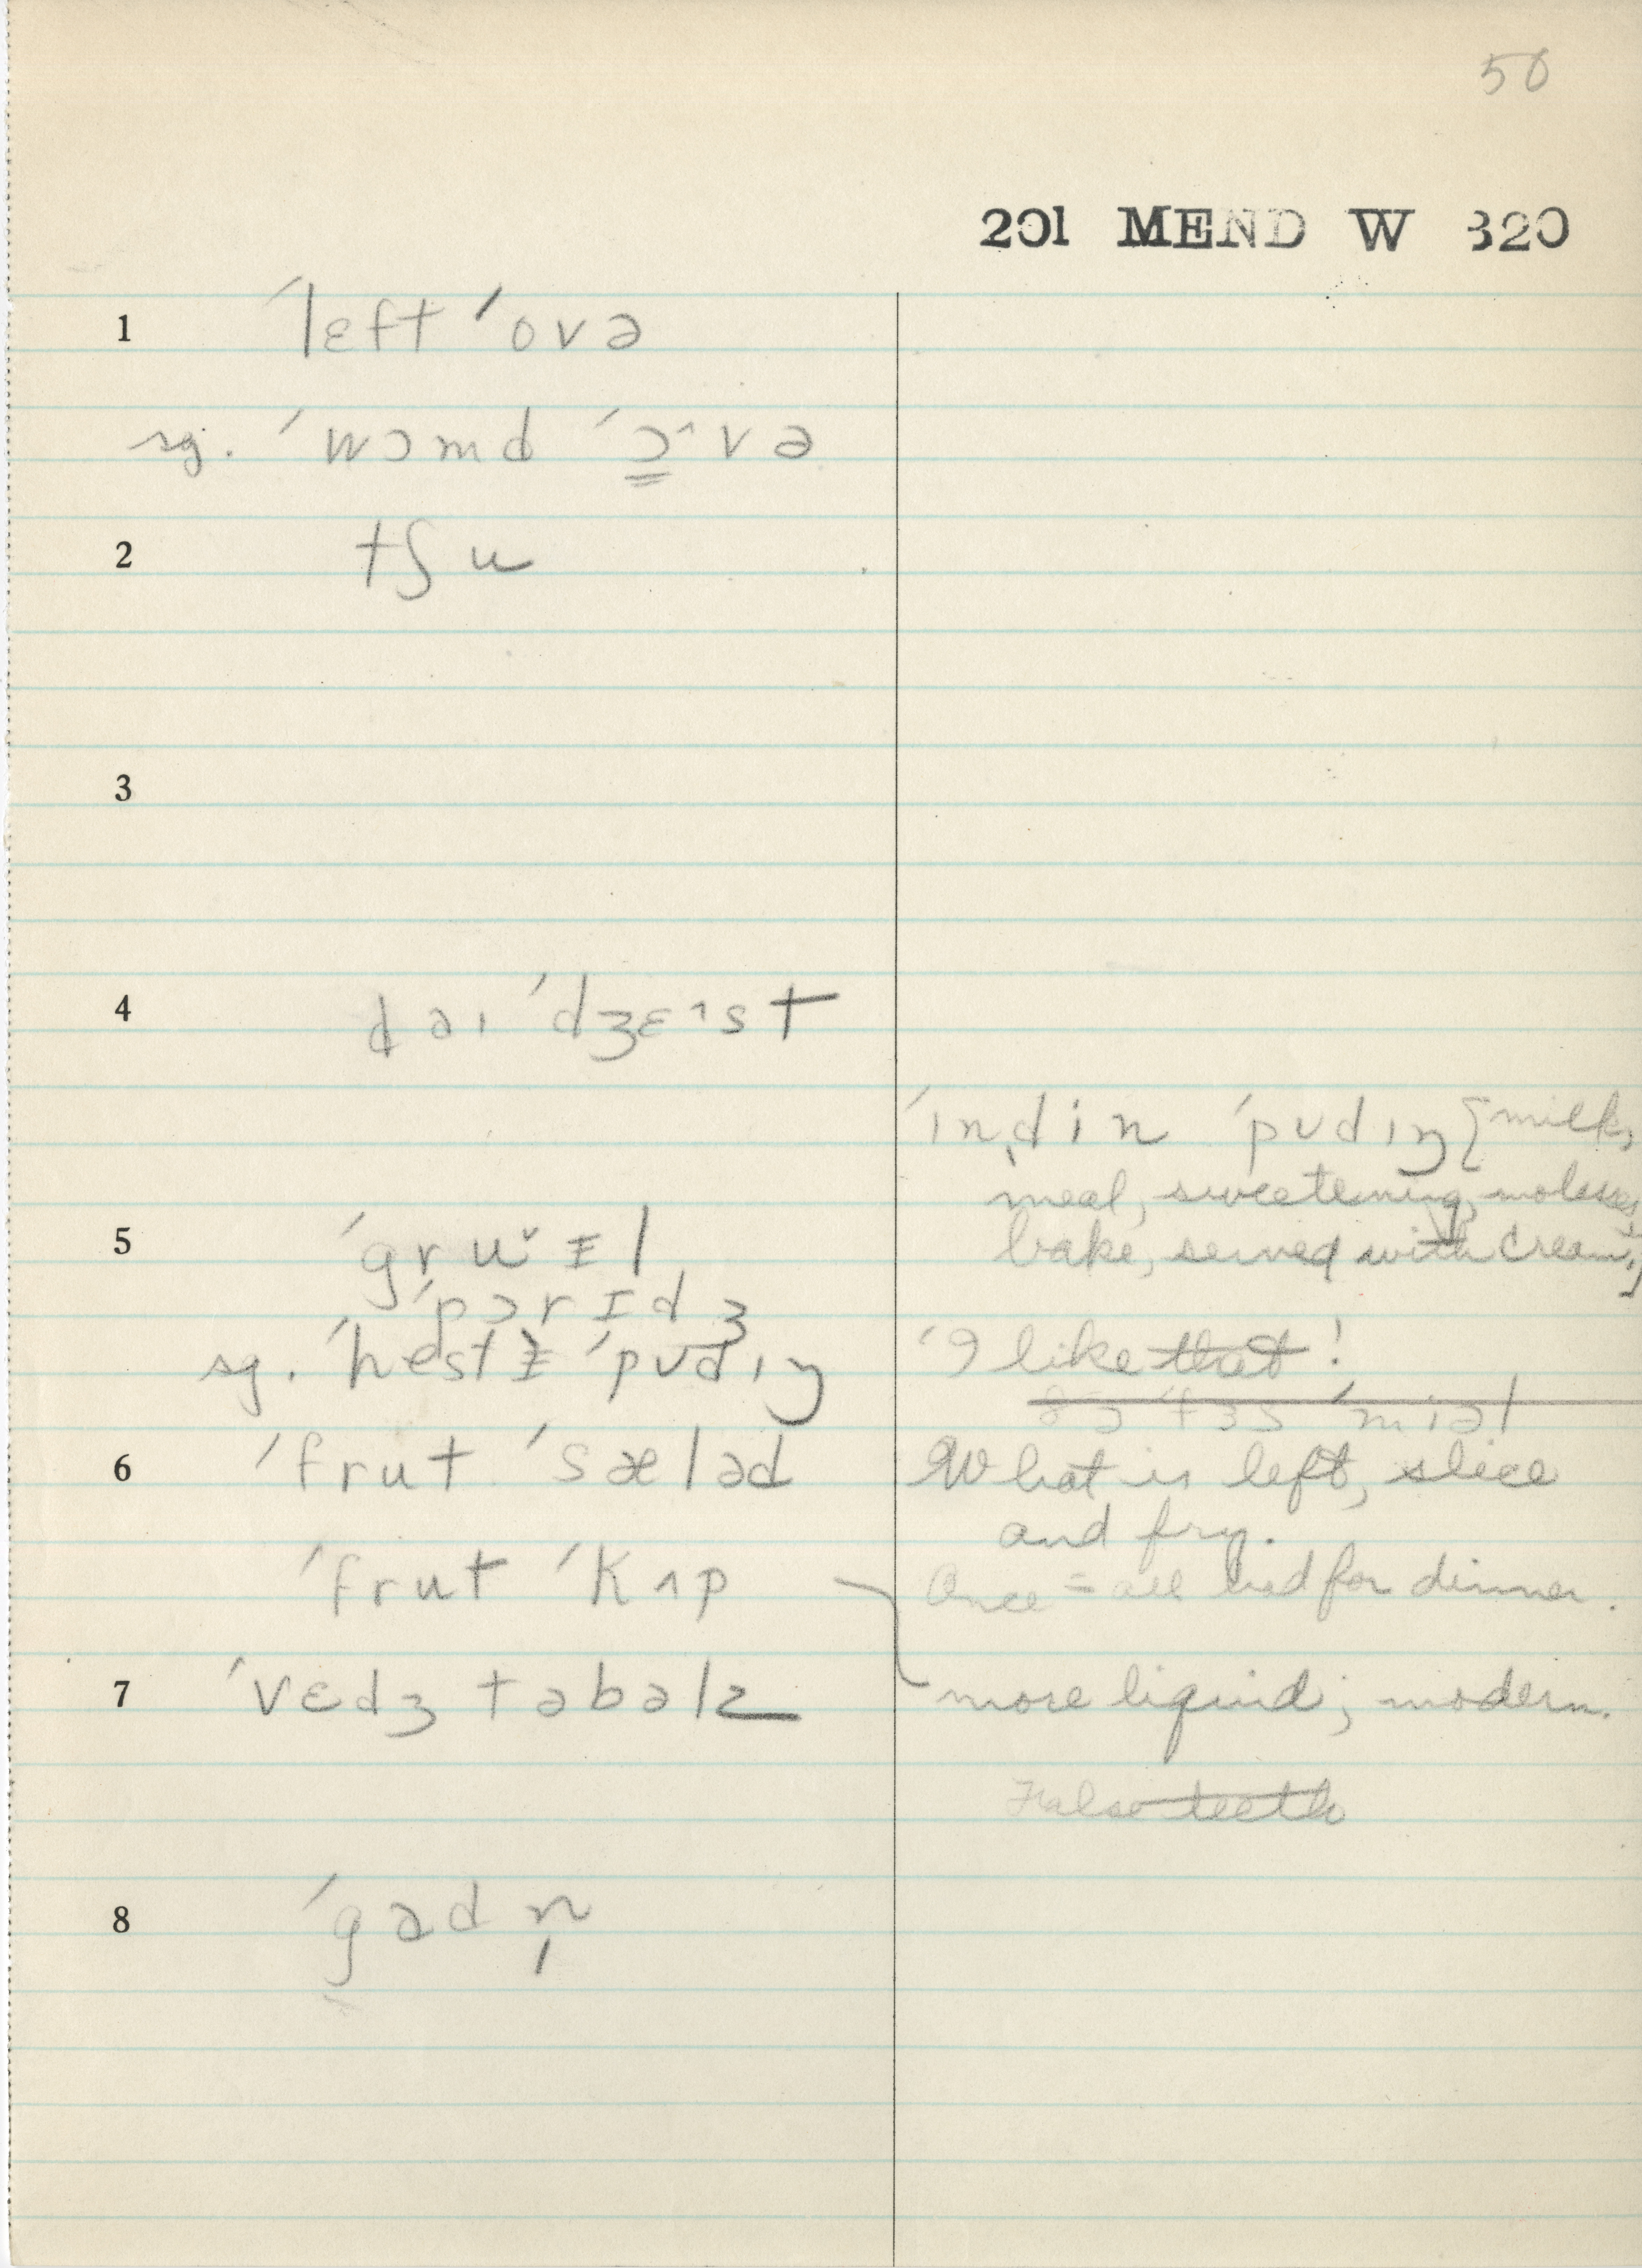 50
201 MEND W 320
1 ´lɛft ´ovə
sg. ´wɔmd ´ɔ̳˄və
2 tʃu
3
4 daɪ ´dʒɛ˄st
´ɪndin ´pʊdɪŋ [milk,
meal, sweetening, molasses,
bake, served with cream.]
5 ´gru˅ᵻl
´pɔrɪdʒ
sg. ´hestᵻ ´pʊdɪŋ
´I like that!
´miəl
6 ´frut ´sæləd
What is left, slice
and fry.
´frut ´kʌp
Once = all had for dinner.
7 ´vɛdʒtəbəlz
more liquid; modern.
False teeth
8 ´gadn̩